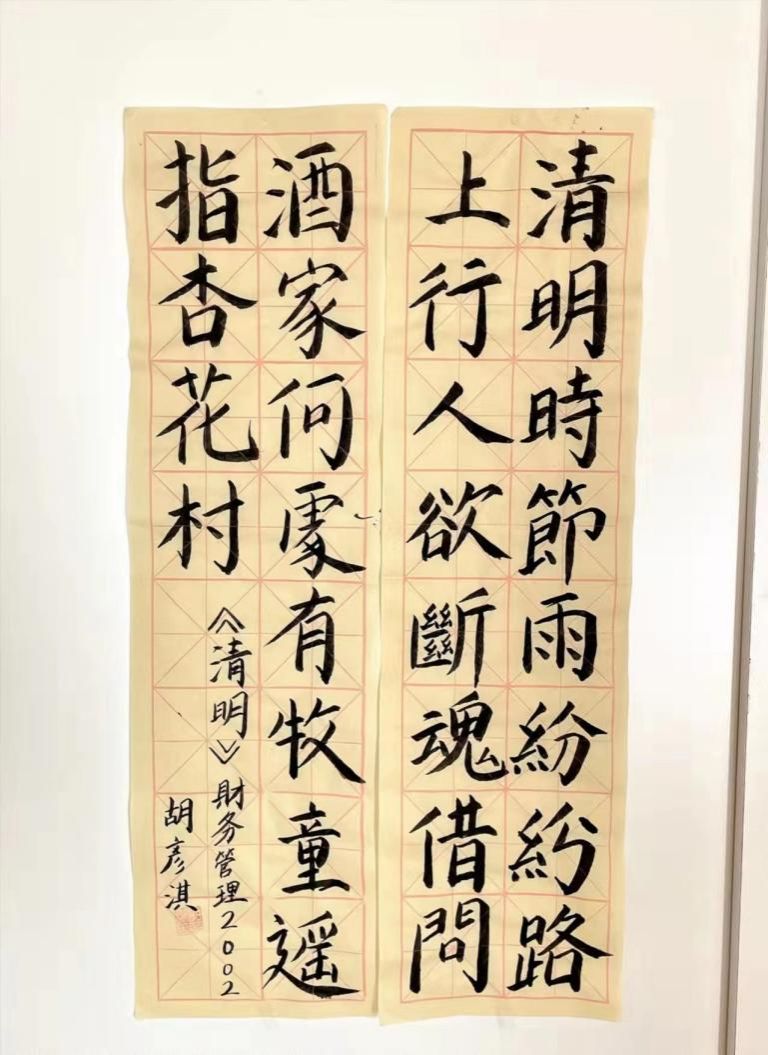 清明時節雨紛紛路
上行人欲斷魂借問
酒家何處有牧童遥
指杏花村
《清明》財务管理2002
胡彦淇